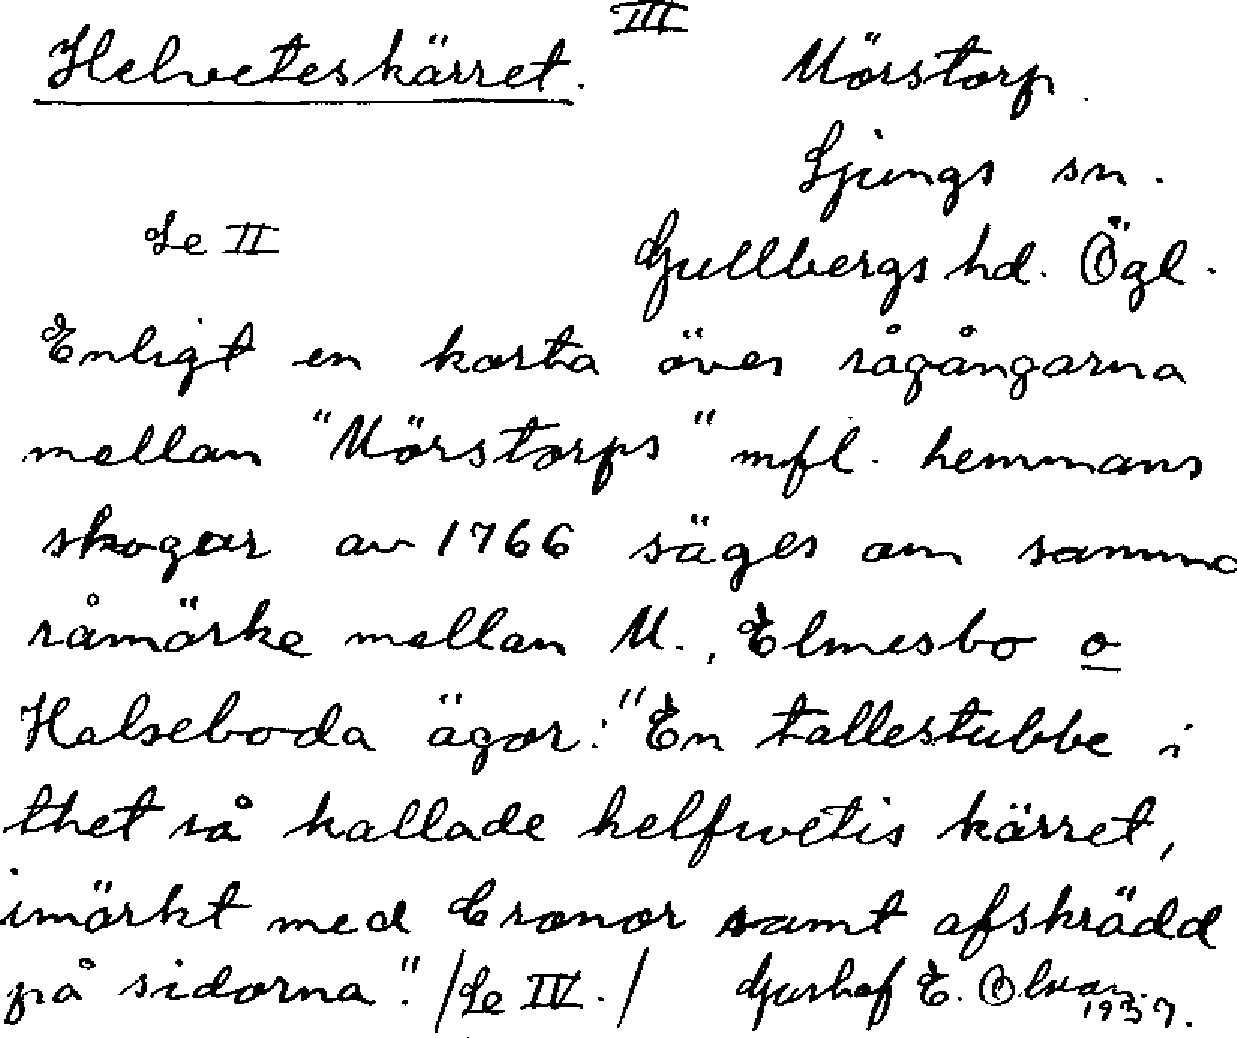 III
Helveteskärret. Mörstorp.
Ljungs sn.
Se II Gullbergs hd. Ögl.
Enligt en karta över rågångarna
mellan "Mörstorps" mfl. hemmans
skogar av 1766 säges om samma
råmärke mellan M., Elmesbo o
Halseboda ägor: "En tallestubbe i
thet så kallade helfwetis kärret,
imärkt med Cronor samt afskrädd
på sidorna". /Se IV./ Gustaf E. Olsson.
1937.